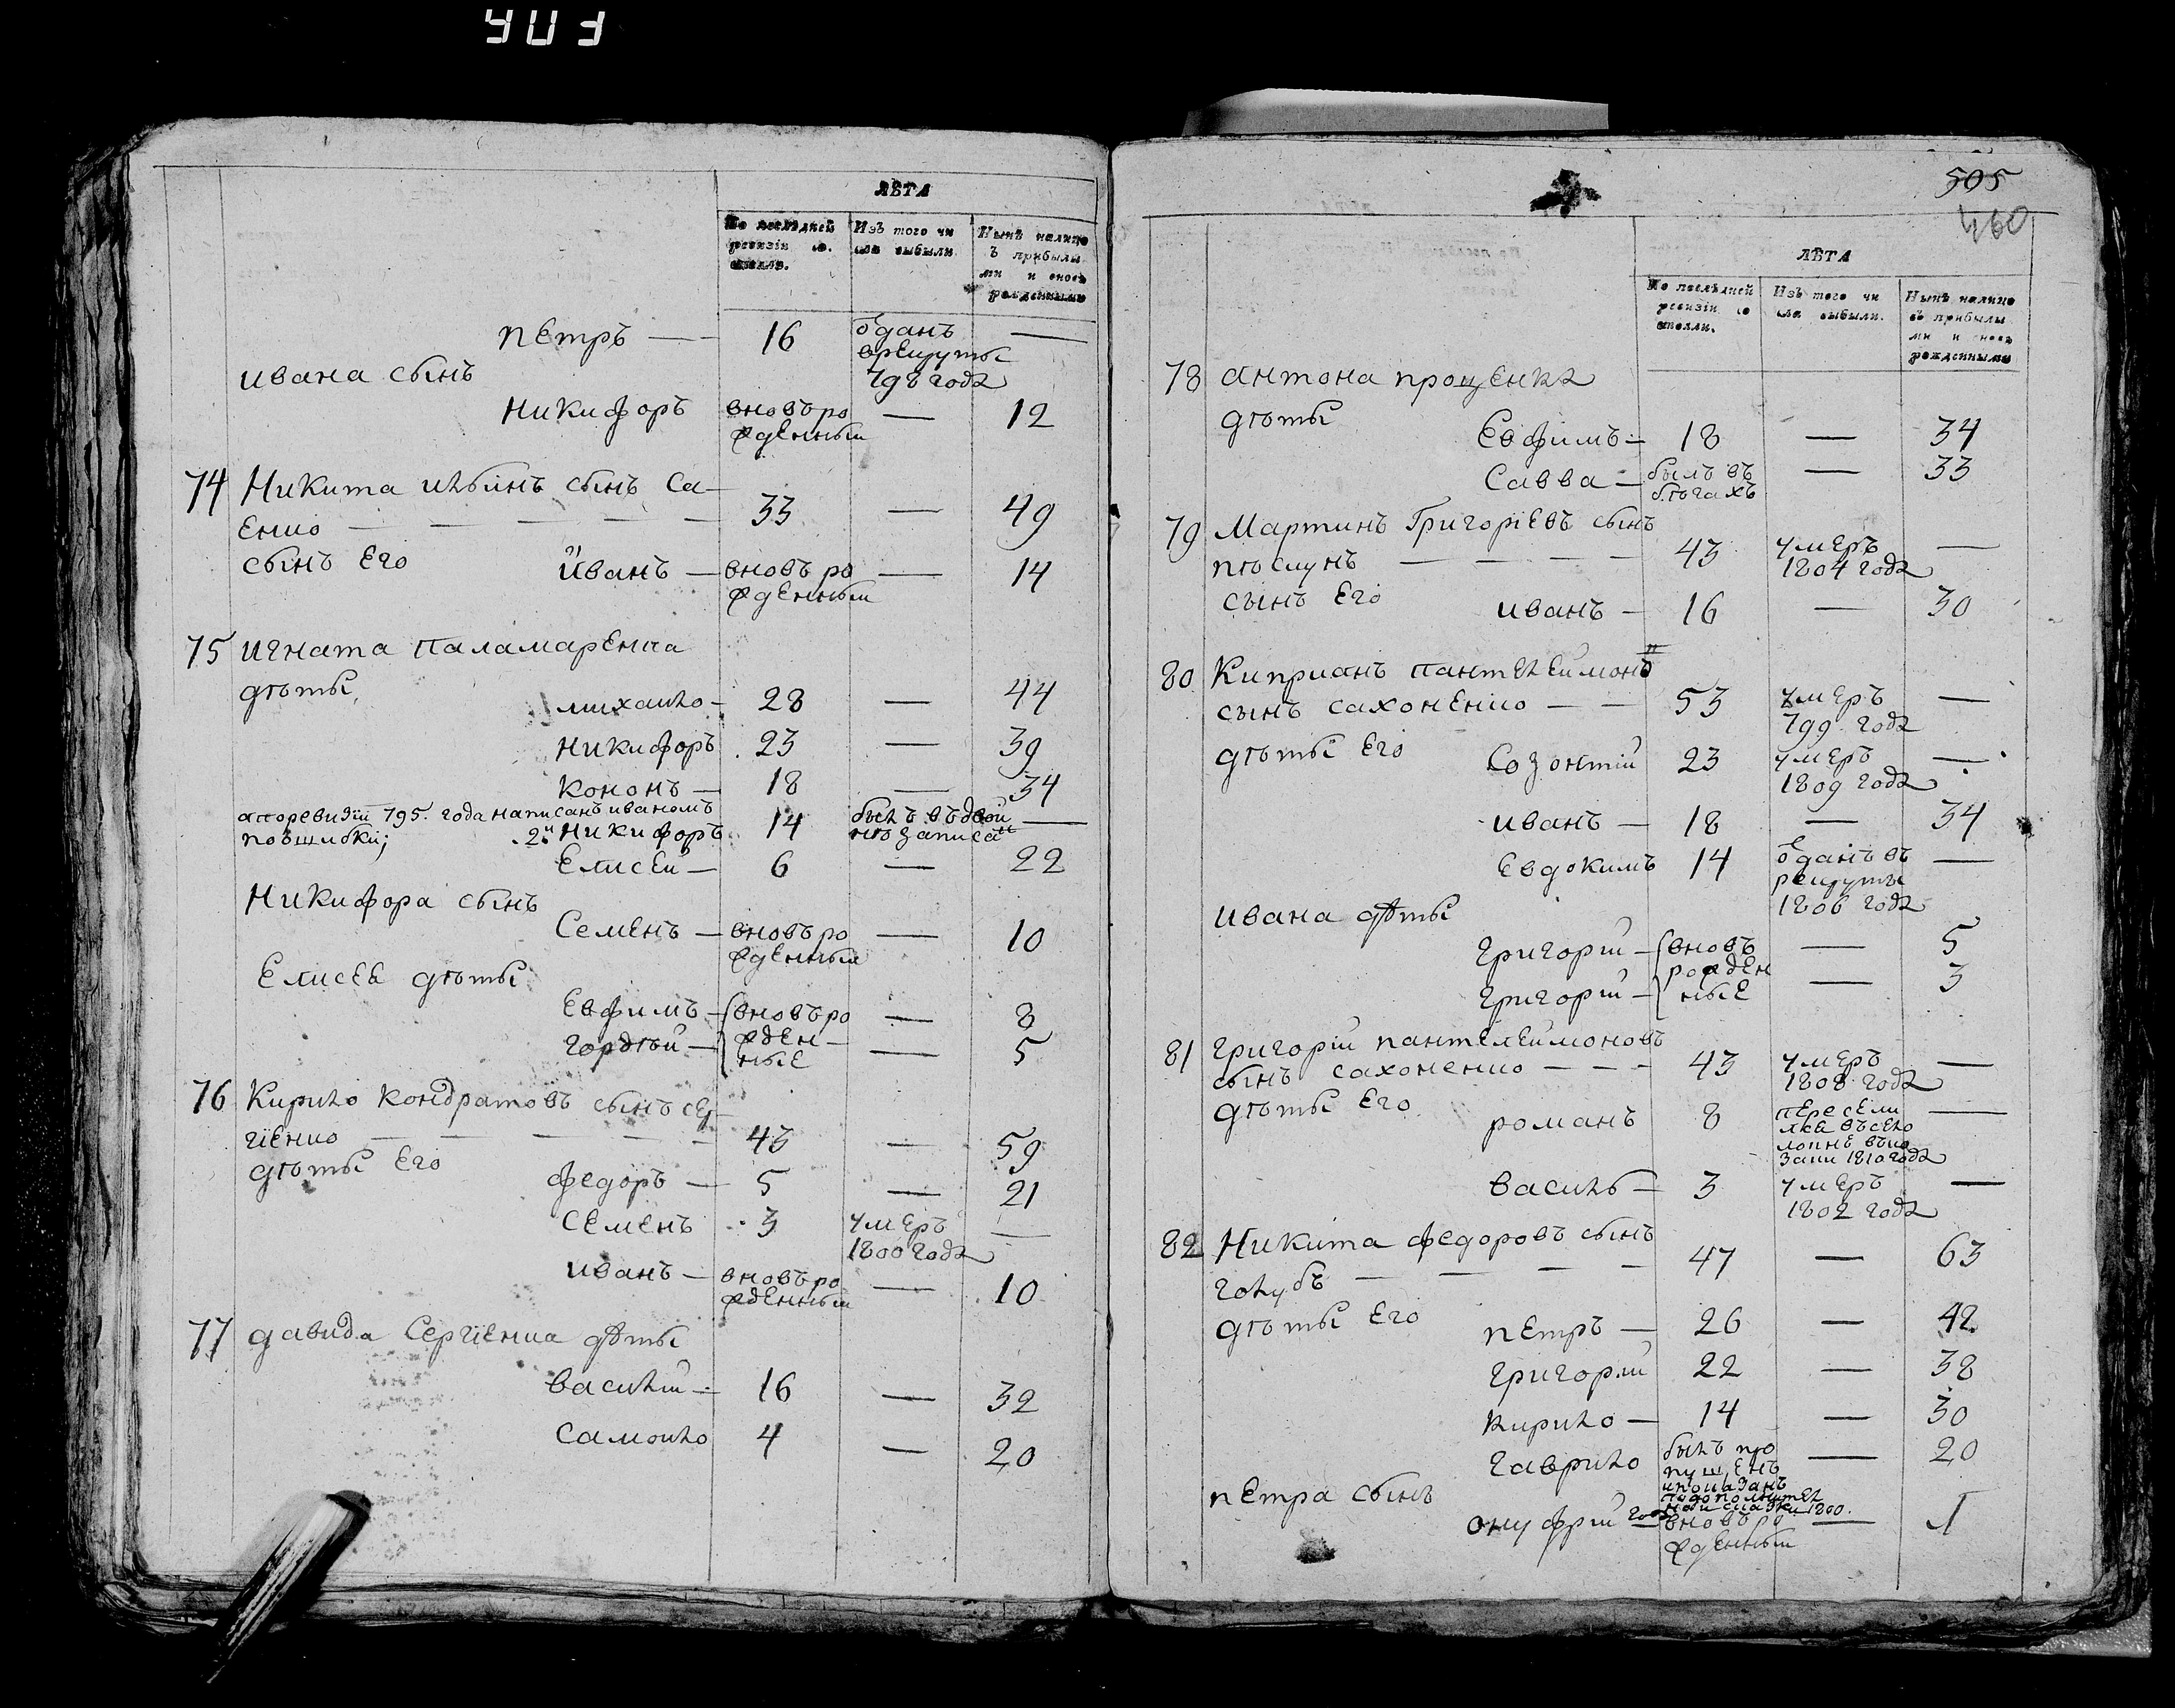 403
ЛѢТА
По послѣдней ревизіи состояло.
Изъ того числа выбыли
Нынѣ налицо съ прибылыми и вновь рожденными
Петръ — 16 ѿданъ —
врекруты
Ивана сынъ 798 года
Никифоръ вновь ро — 12
жденный
74 Никита Ильинъ сынъ Са-
енко — 33 — 49
сынъ его Иванъ — вновь ро — 14
жденный
75 Игната Паламаренка
дѣты,
Михайло — 28 — 44
Никифоръ 23 — 39
Кононъ — 18 — 34
апоревизіи 795. года написанъ иваномъ былъ въдвой
поѡшибки; 2й Никифоръ 14 нѣ записан —
Елисей — 6 — 22
Никифора сынъ
Семенъ — вновь ро — 10
жденный
Елисея дѣты
Евфимъ — вновь ро — 8
Гордѣй — жден- — 5
ные
76 Кирило Кондратовъ сынъ Сер-
гіенко — 43 — 59
дѣты его
Федоръ — 5 — 21
Семенъ 3 умеръ —
1800 года
Иванъ — вновь ро — 10
жденный
77 Давида Сергіенка дѣты
Василий — 16 — 32
Самойло 4 — 20
505
460
ЛѢТА
По послѣдней ревизіи состояли.
Изъ того числа выбыли.
Нынѣ налицо съ прибылыми и вновь рожденными
78 Антона Проценка
дѣты
Евфимъ — 18 — 34
Савва — былъ въ — 33
бѣгахъ
79 Мартинъ Григоріевъ сынъ
43 умеръ —
1804 года
сынъ его Иванъ — 16 — 30
80 Киприанъ Пантелеймоновъ
сынъ Сахоненко — 53 умеръ —
799 года
дѣты его Созонтій 23 умеръ —
1809 года
Иванъ — 18 — 34
Евдокимъ 14 ѿданъ въ —
рекруты
1806 года
Ивана дѣты
Григорій — вновь — 5
рожден
Григорій — ные — 3
81 Григорій Пантелеймоновъ
сынъ Сахоненко — 43 умеръ —
1808 года
дѣты его Романъ 8 пересели —
лся въ село
года 1810
Василь — 3 умеръ —
1802 года
82 Никита Федоровъ сынъ
Голубъ — 47 — 63
дѣты его Петръ — 26 — 42
Григорій 22 — 38
Кирило — 14 — 30
Гаврило былъ про — 20
пущенъ
ипоказанъ
подополнител
ной сказки 1800.
года
Петра сынъ
Онуфрій — вновь ро — 1
жденный